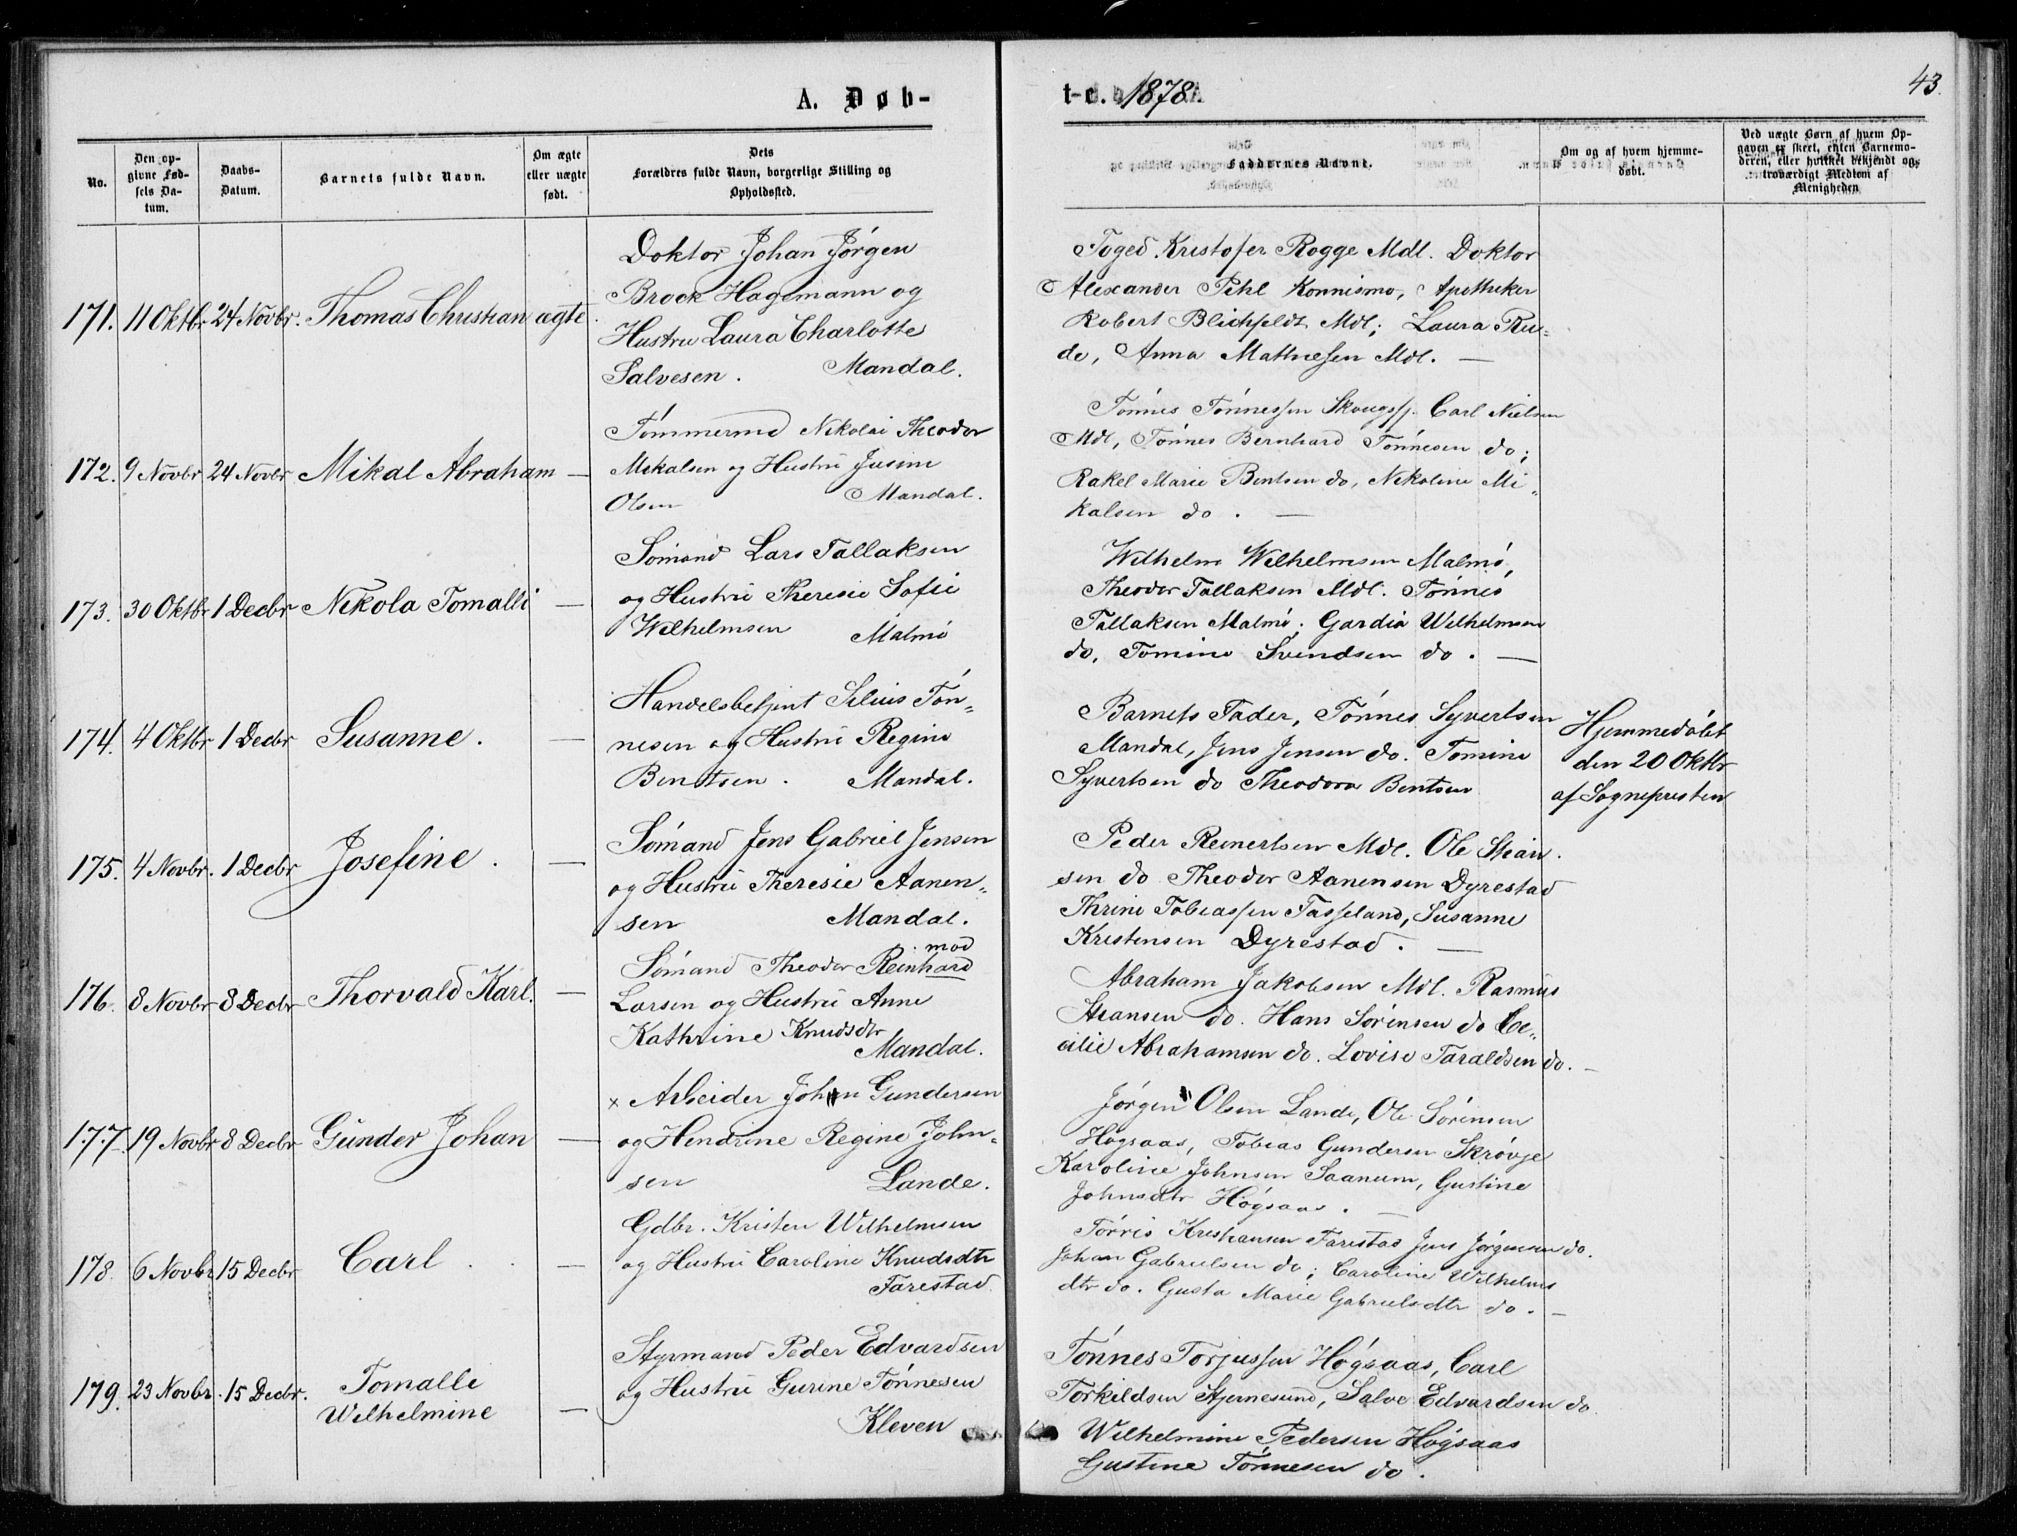 A. Døb-
No.
Den op-
givne Fød-
sels Da-
tum.
Daabs-
Datum.
Barnets fulde Navn.
Om ægte
eller uægte
født.
Dets
Forældres fulde Navn, borgerlige Stilling og
Opholdssted.
171. 11 Oktbr 24 Novbr. Thomas Christian ægte.
Doktor Johan Jörgen
Brock Hagemann og
Hustru Laura Charlotte
Salvesen. Mandal.
172. 9 Novbr 24 Novbr Mikal Abraham —
Tömmermd Nikolai Theodor
Mikalsen og Hustru Jusine
Olsen Mandal.
173. 30 Oktbr 1 Decbr Nikola Tomalli —
Sömand Lars Tallaksen
og Hustru Theresie Sofie
Wilhelmsen Malmö
174. 4 Oktbr 1 Decbr Susanne. —
Handelsbetjent Silius Tön-
nesen og Hustru Regine
Bentsen. Mandal.
175. 4 Novbr. 1 Decbr Josefine. —
Sömand Jens Gabriel Jensen
og Hustru Theresie Aanen-
sen Mandal.
176. 8 Novbr 8 Decbr Thorvald Karl. —
mod
Sömand Theodor Reinhard
Larsen og Hustru Anne
Kathrine Knudsdtr
Mandal.
177. 19 Novbr 8 Decbr Gunder Johan —
x Arbeider John Gundersen
og Hendrine Regine John-
sen Lande.
178. 6 Novbr 15 Decbr Carl . . —
Gdbr. Kristen Wilhelmsen
og Hustru Caroline Knudsdtr
Farestad
179. 23 Novbr. 15 Decbr. Tomalli
Wilhelmine —
Styrmand Peder Edvardsen
og Hustru Gurine Tönnesen
Kleven
t-e. 1878.
43.
Faddernes Navne.
Om og af hvem hjemme-
døbt.
Ved uægte Børn af hvem Op-
gaven er skeet, enten Barnemo-
deren, eller hvilket bekjendt og
troværdigt Medlem af
Menigheden
Foged Kristofer Rogge Mdl. Doktor
Alexander Pihl Konnismo, Apotheker
Robert Blichfeldt Mdl; Laura Ru-
de, Anna Mathiesen Mdl. —
Tönnes Tönnessen Skougsfj. Carl Nielsen
Mdl, Tönnes Bernhard Tönnesen do;
Rakel Marie Bentsen do, Nikoline Mi-
kalsen do. —
Wilhelm Wilhelmsen Malmö,
Theodor Tallaksen Mdl. Tönnes
Tallaksen Malmö. Gardia Wilhelmsen
do, Tomine Svendsen do. —
Barnets Fader, Tönnes Syvertsen
Mandal, Jens Jensen do. Tomine
Syvertsen do Theodora Bentsen
Hjemmedöbt
den 20 Oktbr
af Sognepresten
Peder Reinertsen Mdl. Ole Stian-
sen do Theodor Aanensen Dyrestad
Thrine Tobiassen Fasseland, Susanne
Kristensen Dyrestad. —
Abraham Jakobsen Mdl. Rasmus
Stiansen do. Hans Sörensen do Ce-
cilie Abrahamsen do. Lovise Taraldsen do. —
Jörgen Olsen Lande, Ole Sörensen
Högsaas, Tobias Gundersen Skrövje
Karoline Johnsen Saanum, Gustine
Johnsdtr Högsaas. —
Törris Kristiansen Farestad Jens Jörgensen do.
Johan Gabrielsen do; Caroline Wilhelms
dtr do. Gusta Marie Gabrielsdtr do. —
Tönnes Torjussen Högsaas, Carl
Torkildsen Stjernesund, Salve Edvardsen do
Wilhelmine Pedersen Högsaas
Gustine Tönnesen do.